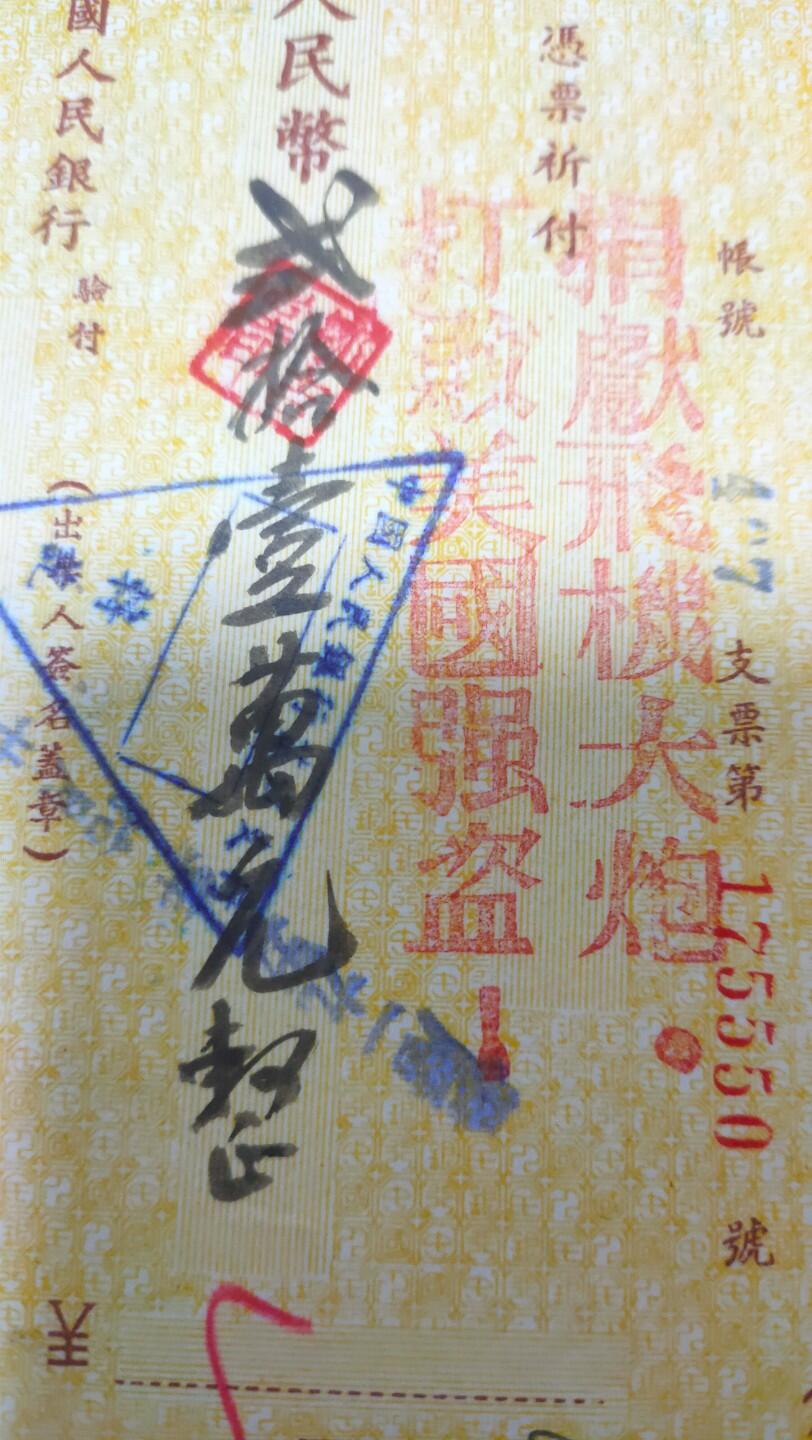 帳號
支票第175550號
捐獻飛機大炮
憑票祈付
打毀美國强盜！
人民幣
貳拾壹萬元整
中國人民銀行
國人民銀行
驗付
（出票人簽名蓋章）
¥